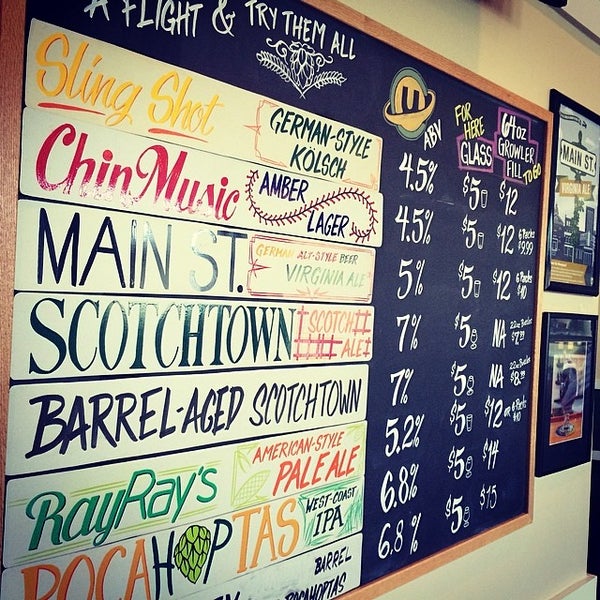 A FLIGHT & TRY THEM ALL
M
ABV
FOR HERE
GLASS
64oz
GROWLER
FILL
TO GO
Sling Shot
GERMAN-STYLE
KÖLSCH
4.5% $5 $12
Chin Music
AMBER
LAGER
4.5% $5 $12 6 Packs $9.99
MAIN ST.
GERMAN ALT-STYLE BEER
VIRGINIA ALE
5% $5 $12 6 Packs $10
SCOTCHTOWN
SCOTCH
ALE
7% $5 NA 22oz Bottles $7.99
BARREL-AGED SCOTCHTOWN
7% $5 NA 22oz Bottles $8.99
RayRay's
AMERICAN-STYLE
PALE ALE
5.2% $5 $12 or 6 Packs $10
POCAHOPTAS
WEST-COAST
IPA
6.8% $5 $14
BARREL
POCAHOPTAS
6.8% $5 $15
MAIN ST.
VIRGINIA ALE